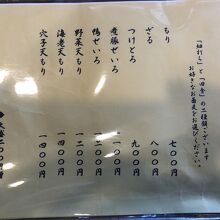 「細打ち」と「田舎」の二種類ございます
お好きなお蕎麦をお選びください。
もり 七〇〇円
ざる 八〇〇円
つけとろ 九〇〇円
愛豚せいろ 一一〇〇円
鴨せいろ 一二〇〇円
野菜天もり 一二〇〇円
海老天もり 一四〇〇円
穴子天もり 一四〇〇円
大盛 二〇〇円増